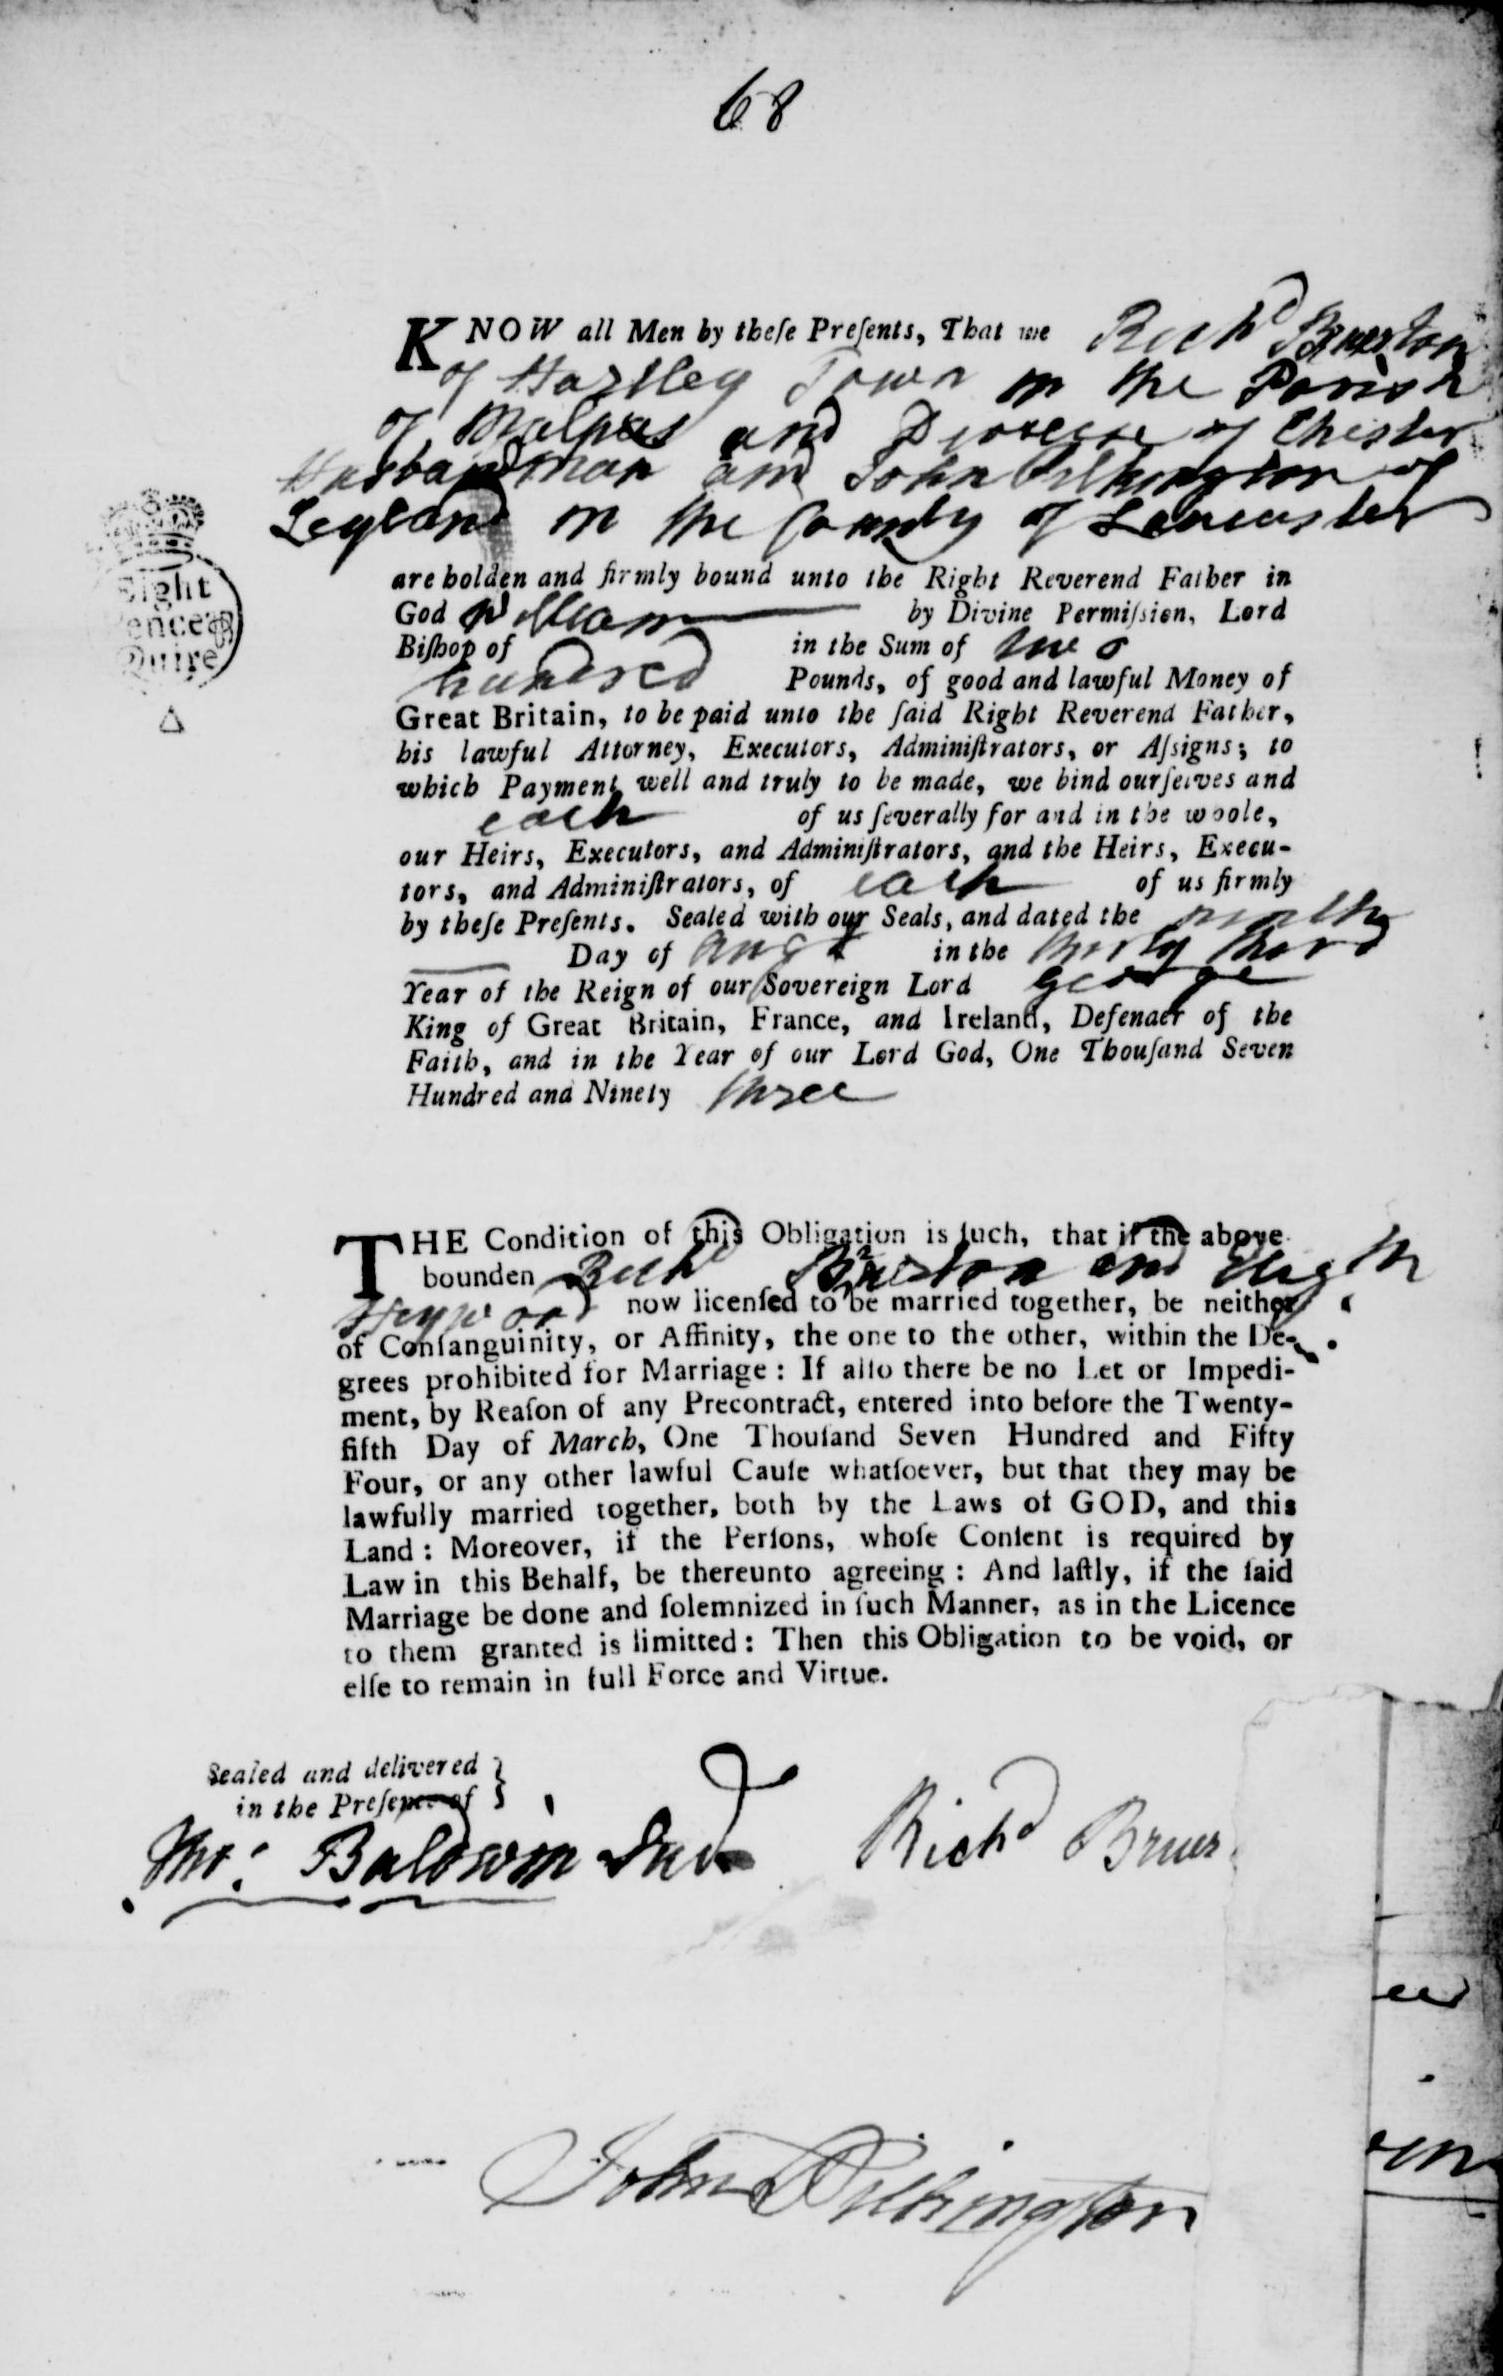 68
KNOW all Men by theſe Preſents, That we Richd Bruerton
of Hartley Town in the Parish
of Malpas and Diocese of Chester
Husbandman and John Pilkington of
Leyland in the County of Lancaster
are holden and firmly bound unto the Right Reverend Father in
God William by Divine Permiſſion, Lord
Biſhop of in the Sum of two
hundred Pounds, of good and lawful Money of
Great Britain, to be paid unto the ſaid Right Reverend Father,
his lawful Attorney, Executors, Adminiſtrators, or Aſsigns; to
which Payment well and truly to be made, we bind ourſelves and
each of us ſeverally for and in the whole,
our Heirs, Executors, and Adminiſtrators, and the Heirs, Execu-
tors, and Adminiſtrators, of each of us firmly
by theſe Preſents. Sealed with our Seals, and dated the
Day of Augt in the thirty third
Year of the Reign of our Sovereign Lord George
King of Great Britain, France, and Ireland, Defender of the
Faith, and in the Year of our Lord God, One Thouſand Seven
Hundred and Ninety three
Eight
Pence ⅌
Quire
THE Condition of this Obligation is ſuch, that if the above
bounden Richd and Elizth
Heywood now licenſed to be married together, be neither
of Conſanguinity, or Affinity, the one to the other, within the De-
grees prohibited for Marriage: If alſo there be no Let or Impedi-
ment, by Reaſon of any Precontract, entered into before the Twenty-
fifth Day of March, One Thouſand Seven Hundred and Fifty
Four, or any other lawful Cauſe whatſoever, but that they may be
lawfully married together, both by the Laws of GOD, and this
Land: Moreover, if the Perſons, whoſe Conſent is required by
Law in this Behalf, be thereunto agreeing: And laſtly, if the ſaid
Marriage be done and ſolemnized in ſuch Manner, as in the Licence
to them granted is limitted: Then this Obligation to be void, or
elſe to remain in full Force and Virtue.
Sealed and delivered
in the Preſence of
Tho: Baldwin Richd Bruer
John Pilkington